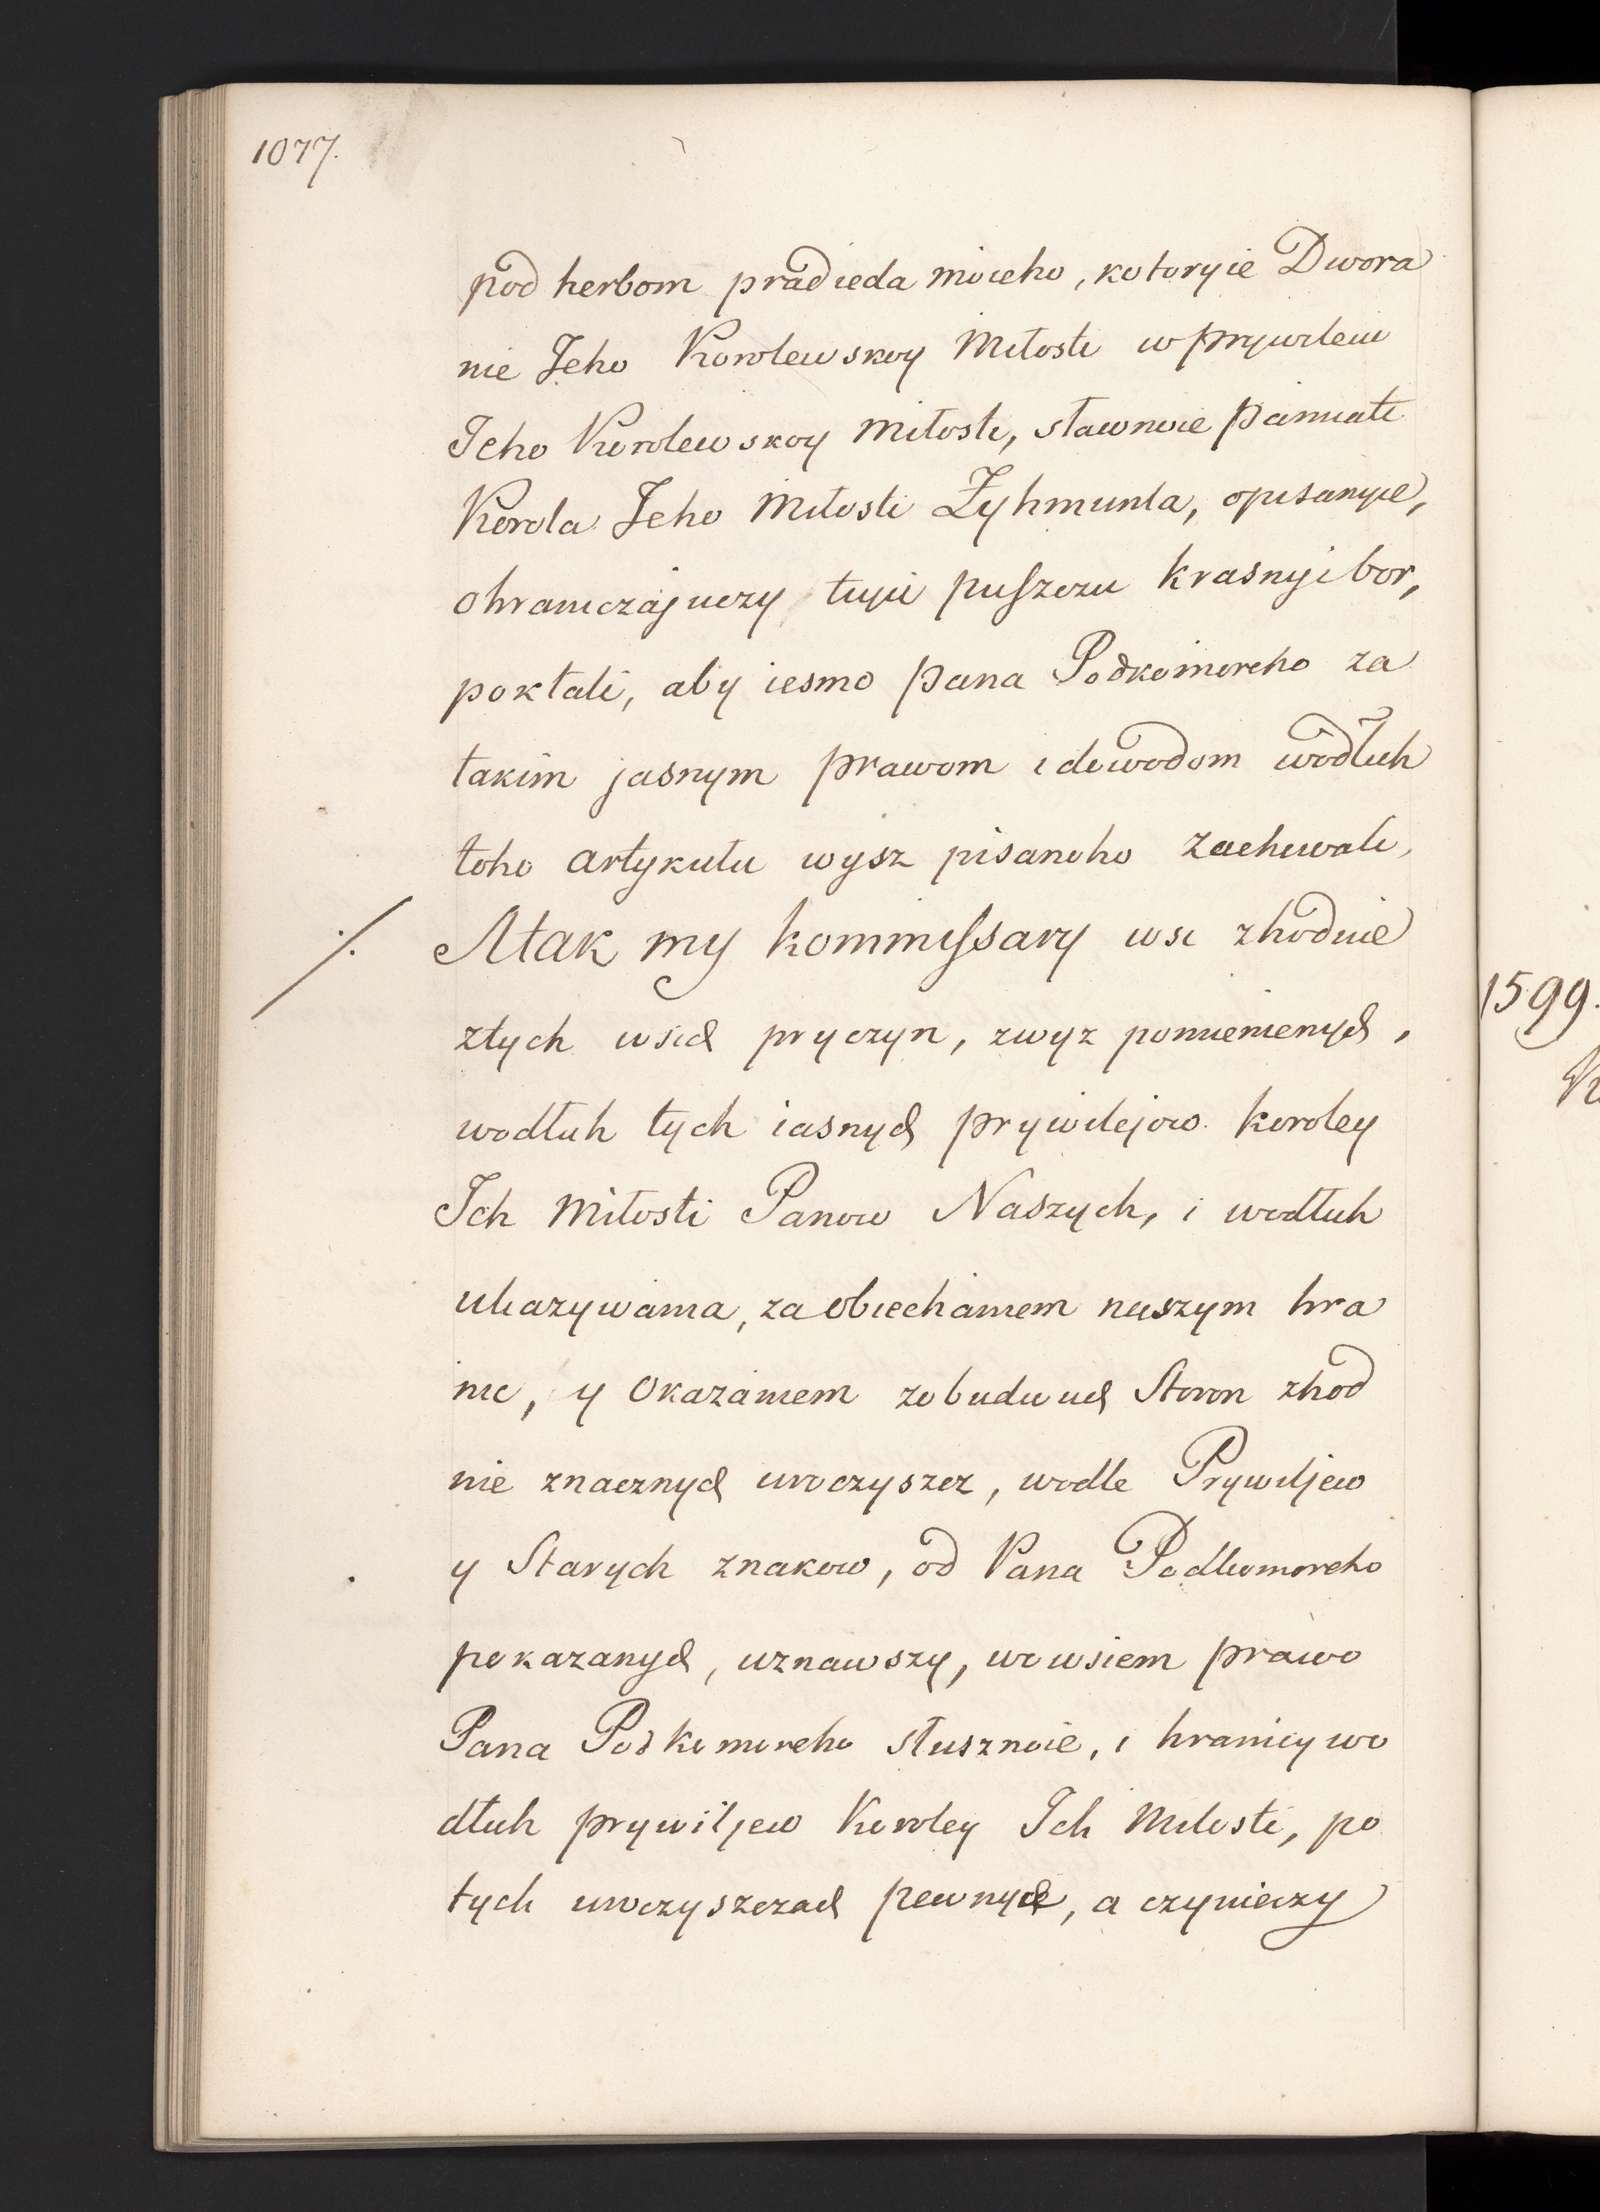 1077.
pod herbom pradieda moieho, kotoryie Dwora
nie Jeho Korolewskoy Miłosti w prywileiu
Jeho Korolewskoy Miłosti, sławnoie pamiati
Korola Jeho Miłosti Zyhmunta, opisanyie,
ohraniczajuczy tuju puszczu krasnyi bor,
pokłali, aby iesmo pana Podkomoreho za
takim jasnym prawom i dowodom wodłuh
toho artykułu wysz pisanoho zachowali,
./. A tak my kommissary wsi zhodnie
z tych wsich pryczyn, zwyz pomienienych,
wodłuh tych iasnych prywilejow koroley
Ich Miłosti Panow Naszych, i wodłuh
ukazywania, za obiechaniem naszym hra
nic, y okazaniem z obudwuch Storon zhod
nie znacznych uroczyszcz, wodle Prywiljew
y Starych znakow, od Pana Podkomoreho
pokazanych, uznawszy, wo wsiem prawo
Pana Podkomoreho słusznoie, i hranicy wo
dłuh prywiljew Koroley Ich Miłosti, po
tych uroczyszczach pewnyie, a czynieczy
1599.